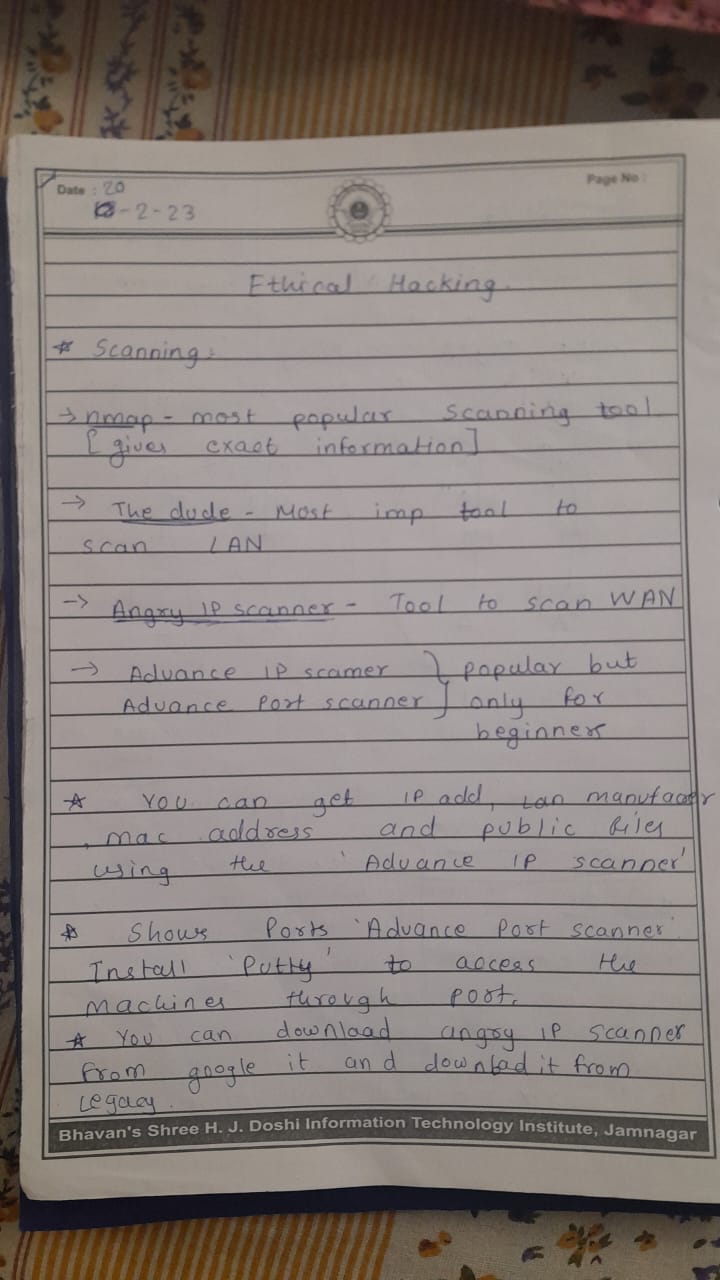 Date : 20
-2-23
Page No :
Ethical Hacking.
* Scanning :
→ nmap - most popular scanning tool
[gives exact information]
→ The dude - Most imp tool to
scan LAN
→ Angry IP scanner - Tool to scan WAN
→ Advance IP scanner } popular but
Advance Port scanner ] only for
beginners
* You can get IP add, Lan manufactr
, mac address and public files
using the 'Advance IP scanner'
* Shows Ports 'Advance Port scanner'
Install 'Putty' to access the
machines through port.
* You can download angry IP scanner
from google it and download it from
Legacy.
Bhavan's Shree H. J. Doshi Information Technology Institute, Jamnagar